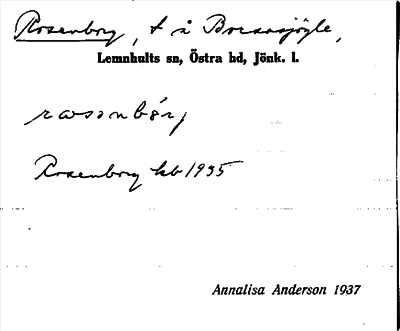 Rosenborg, t å Boaasjögle,
Lemnhults sn, Östra hd, Jönk. l.
Rosenborg kb 1935
Annalisa Anderson 1937